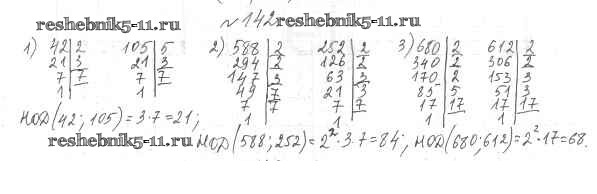 №142 reshebnik5-11.ru
reshebnik5-11.ru
1) 42|2 105|5 2) 588|2 252|2 3) 680|2 612|2
21|3 21|3 294|2 126|2 340|2 306|2
7|7 7|7 147|3 63|3 170|2 153|3
1 1 49|7 21|3 85|5 51|3
7|7 7|7 17|17 17|17
1 1 1 1
НОД(42; 105)=3·7=21;
reshebnik5-11.ru НОД(588; 252)=2²·3·7=84; НОД(680; 612)=2²·17=68.